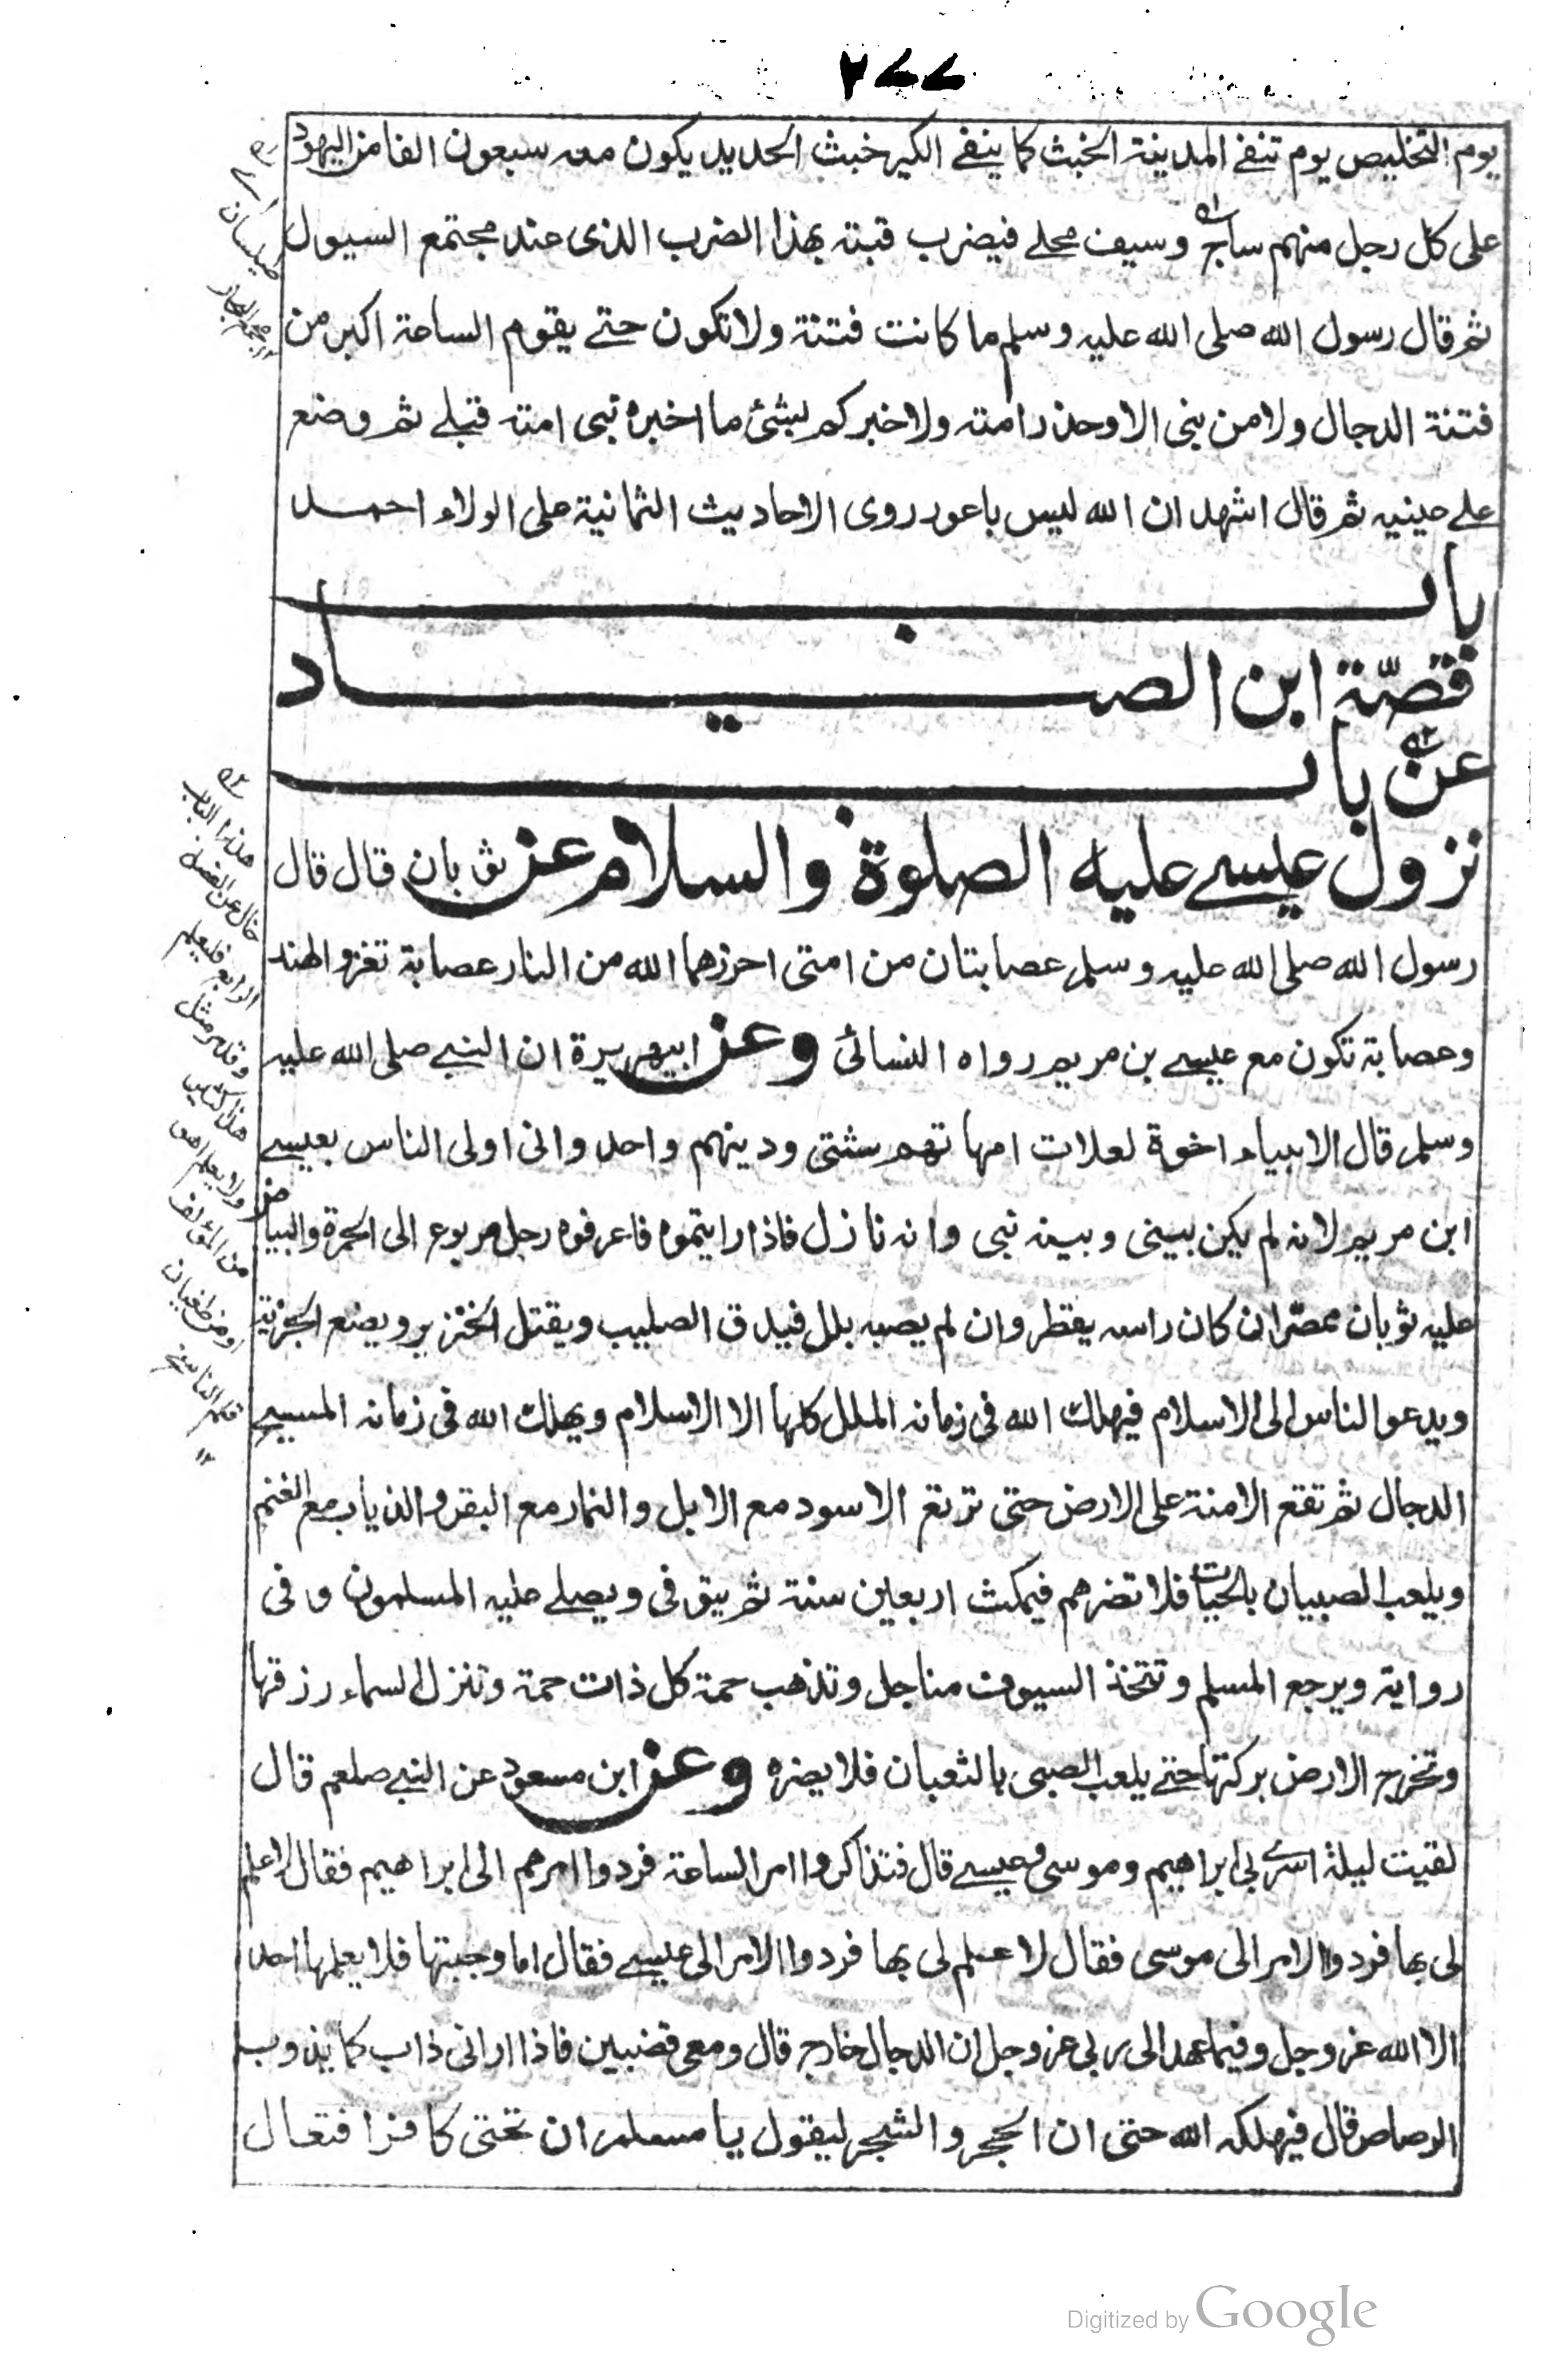 ٢٧٧
يوم التخليص يوم تنفے المدينة الخبث كما ينفے الكير خبث الحديد يكون معه سبعون الفا من اليهود
على كل رجل منهم ساج وسيف محلے فيضرب قبته بهذا الضرب الذى عند مجتمع السيول
ثم قال رسول الله صلى الله عليه وسلم ما كانت فتنة ولا تكون حتے يقوم الساعة اكبر من
فتنة الدجال ولا من نبى الا وحذر امته ولاخبركم بشئ ما اخبره نبى امته قبلے ثم وضع
علے عينيه ثم قال اشهد ان الله ليس باعور روى الاحاديث الثمانية على الولاء احمد
باب
فقصّة ابن الصياد
عن باب
نزول عيسے عليه الصلوة والسلام عن ثوبان قال قال
رسول الله صلى الله عليه وسلم عصابتان من امتى احرزهما الله من النار عصابة تغزو الهند
وعصابة تكون مع عيسے بن مريم رواه النسائى وعن ابيهريرة ان النبے صلى الله عليه
وسلم قال الانبياء اخوة لعلات امهاتهم شتى ودينهم واحد وانى اولى الناس بعيسے
ابن مريم لانه لم يكن بينى وبينه نبى وانه نازل فاذا رايتموه فاعرفوه رجل مربوع الى الحمرة والبياض
عليه ثوبان ممصران كان راسه يقطر وان لم يصبه بلل فيدق الصليب ويقتل الخنزير ويضع الجزية
ويدعو الناس الى الاسلام فيهلك الله فى زمانه الملل كلها الا الاسلام ويهلك الله فى زمانه المسيح
الدجال ثم تقع الامنة على الارض حتى ترتع الاسود مع الابل والنمار مع البقر والذياب مع الغنم
ويلعب الصبيان بالحيات فلا تضرهم فيمكث اربعين سنة ثم يتوفى ويصلے عليه المسلمون وفى
رواية ويرجع المسلم وتتخذ السيوف مناجل وتذهب حمة كل ذات حمة وتنزل السماء رزقها
وتخرج الارض بركتها حتے يلعب الصبى بالثعبان فلا يضره وعن ابن مسعود عن النبے صلعم قال
لقيت ليلة اسرے بى ابراهيم وموسى وعيسے قال فتذاكروا امر الساعة فردوا امرهم الى ابراهيم فقال لا علم
لى بها فردوا الامر الى موسى فقال لا علم لى بها فردوا الامر الى عيسے فقال اما وجبتها فلا يعلمها احد
الا الله عز وجل وفيما عهد الى ربى عز وجل ان الدجال خارج قال ومعى قضيبين فاذا ارانى ذاب كما يذوب
الرصاص قال فيهلكه الله حتى ان الحجر والشجر ليقول يا مسلم ان تحتى كافرا فتعال
طيلسان
مجمع البحار
هذا الباب
خال عن الفصل
الرابع فليعلم
وقد مثل
هذا كثير
ولا يعلم اهو
من المؤلف
او من طغيان
قلم الناسخ
١٢
Digitized by Google